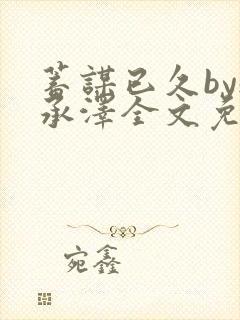 蓄謀已久by
承澤全文免
宛鑫